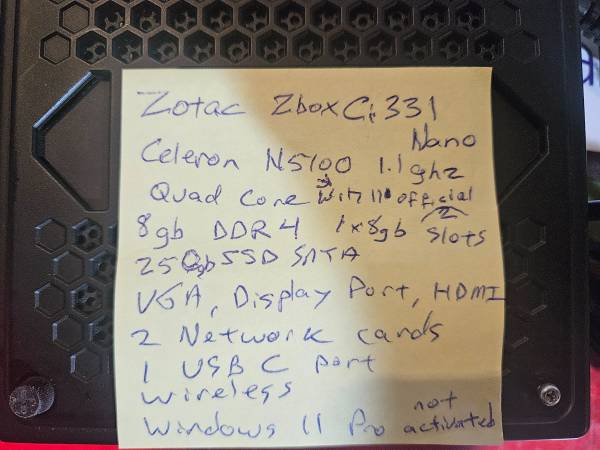 Zotac Zbox Ci331
Nano
Celeron N5100 1.1ghz
Quad Core Win 11 official
8gb DDR4 1x8gb 2 slots
250gb SSD SATA
VGA, Display Port, HDMI
2 Network cards
1 USB C port
wireless
Windows 11 Pro not activated